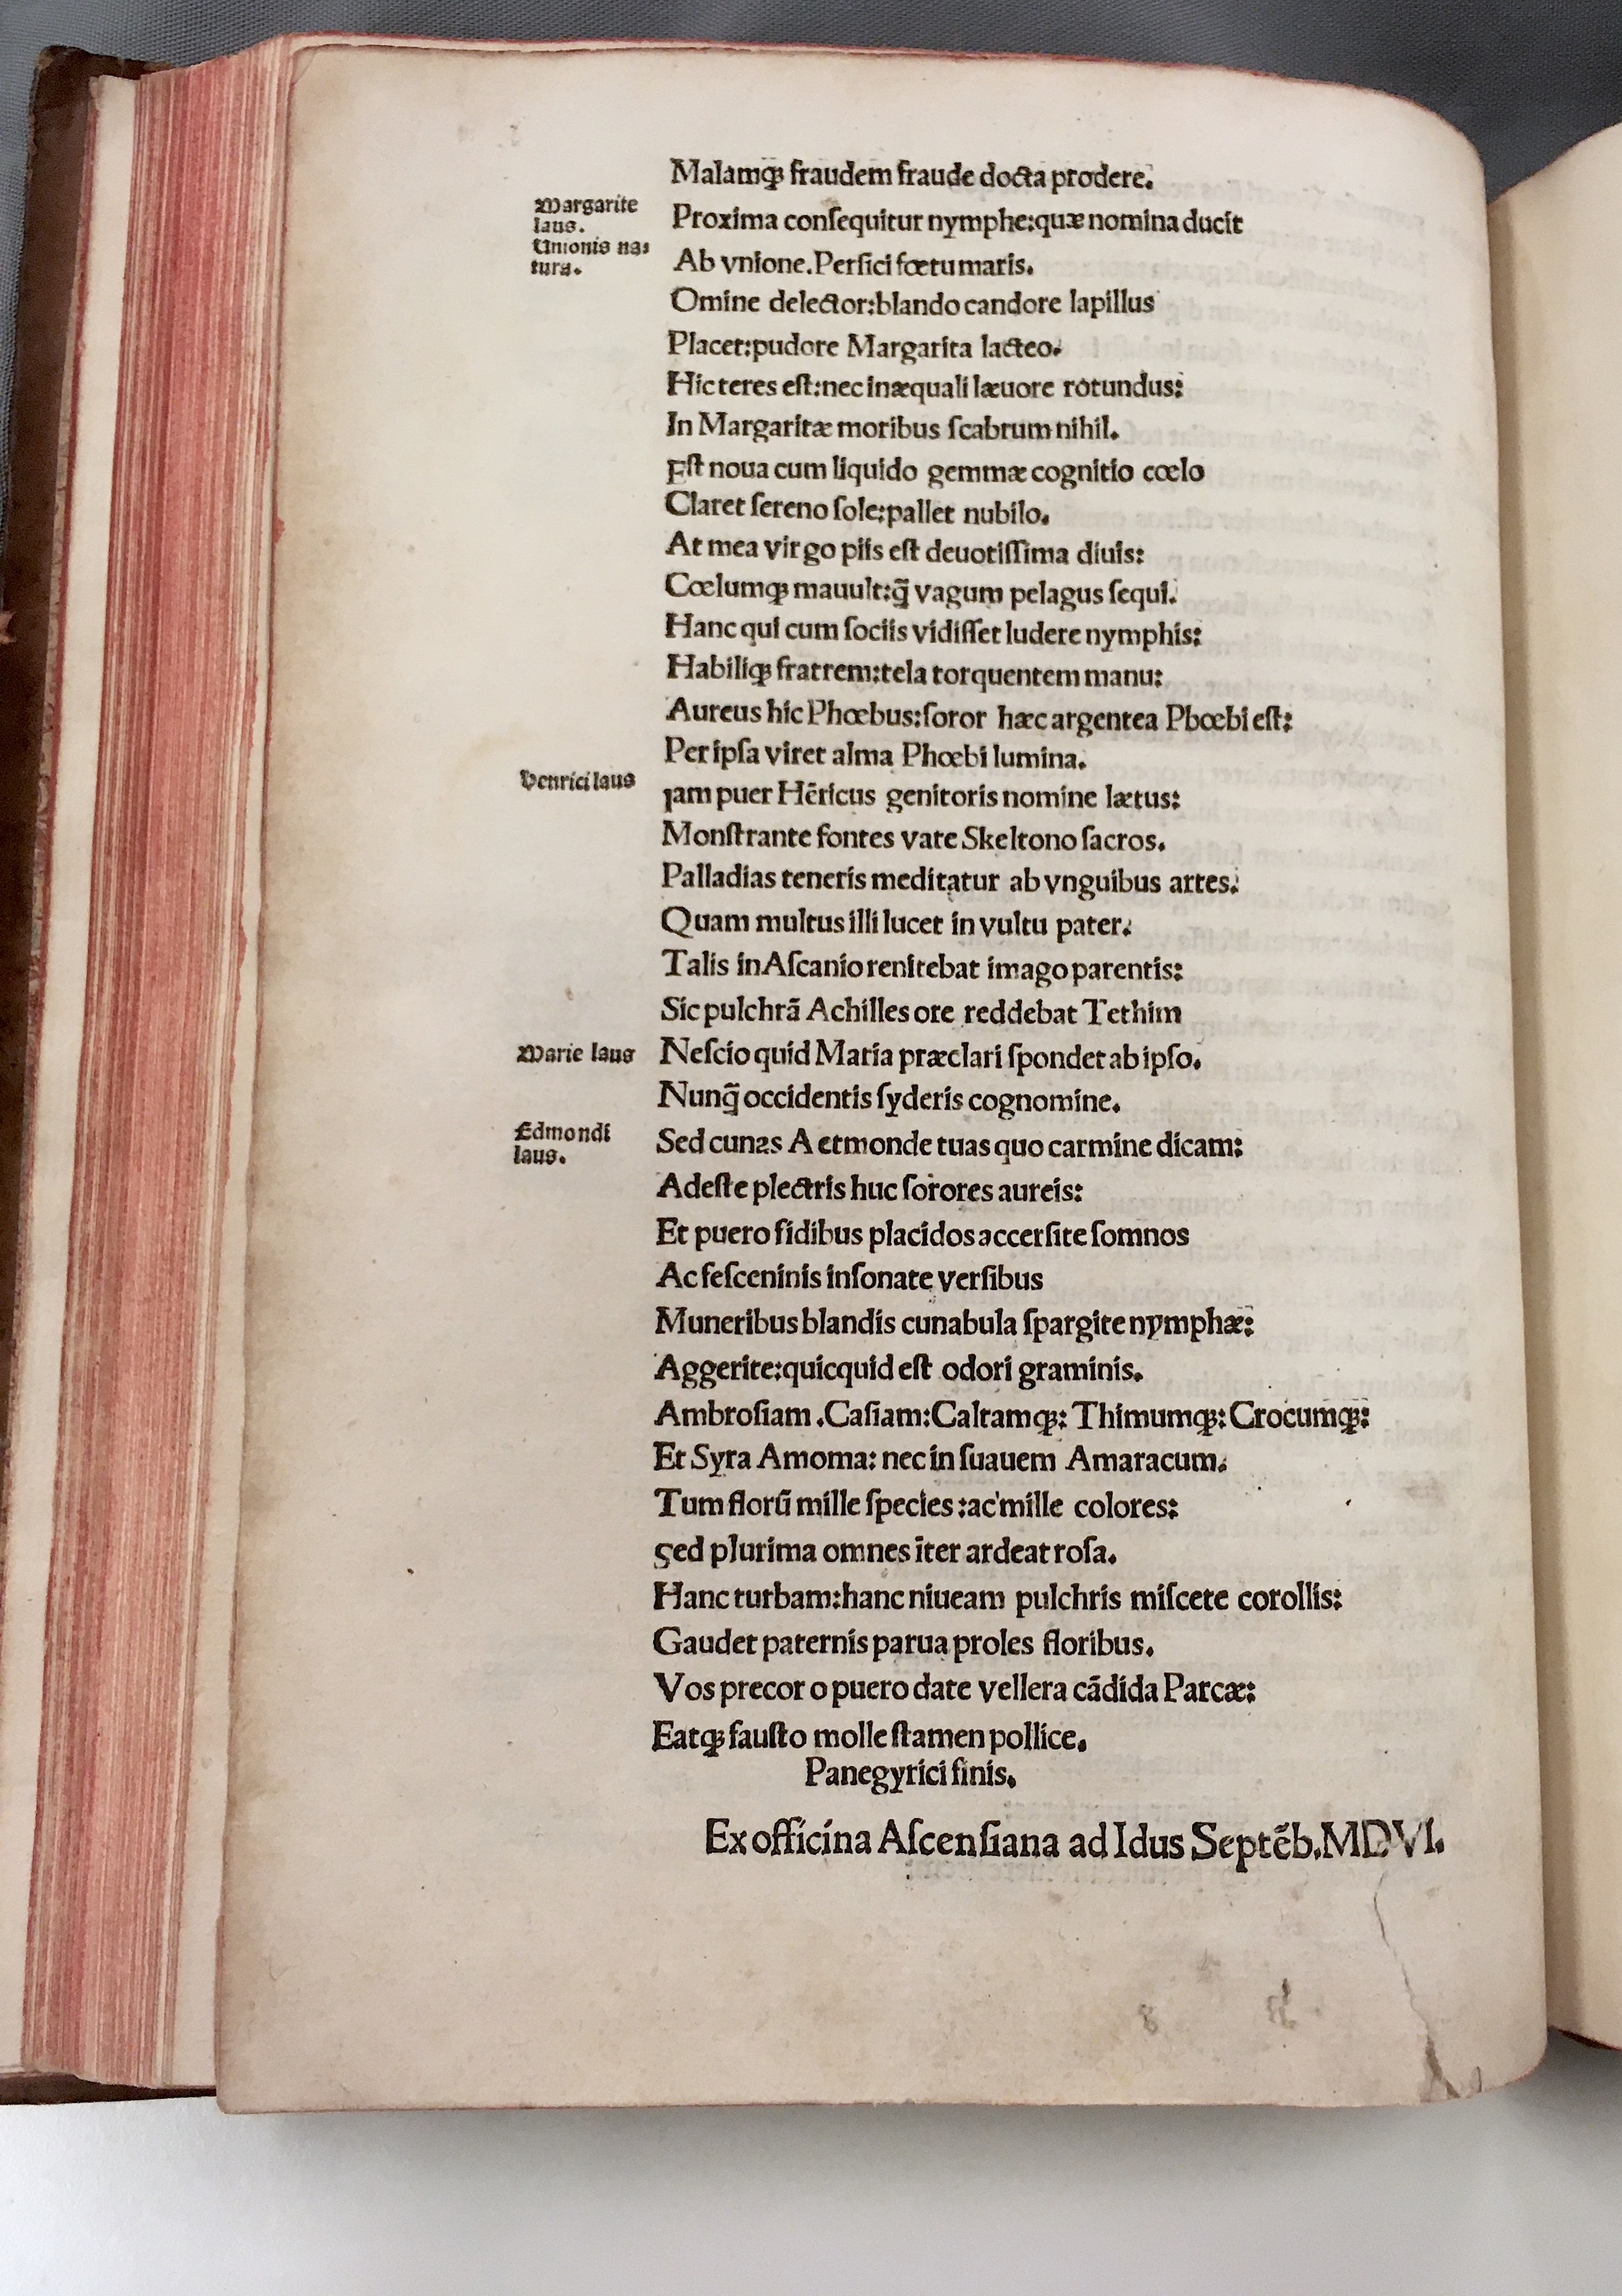 Malamqꝫ fraudem fraude docta prodere.
Margarite
laus.
Vnionis na⸗
tura.
Proxima conſequitur nymphe:quæ nomina ducit
Ab vnione.Perſici fœtu maris.
Omine delector:blando candore lapillus
Placet:pudore Margarita lacteo.
Hic teres eſt:nec inæquali læuore rotundus:
In Margaritæ moribus ſcabrum nihil.
Eſt noua cum liquido gemmæ cognitio cœlo
Claret ſereno ſole:pallet nubilo.
At mea virgo piis eſt deuotiſſima diuis:
Cœlumqꝫ mauult:q̃ vagum pelagus ſequi.
Hanc qui cum ſociis vidiſſet ludere nymphis:
Habiliqꝫ fratrem:tela torquentem manu:
Aureus hic Phœbus:ſoror hæc argentea Pbœbi eſt:
Per ipſa viret alma Phœbi lumina.
Henrici laus
Jam puer Hēricus genitoris nomine lætus:
Monſtrante fontes vate Skeltono ſacros.
Palladias teneris meditatur ab vnguibus artes.
Quam multus illi lucet in vultu pater.
Talis in Aſcanio renitebat imago parentis:
Sic pulchrā Achilles ore reddebat Tethim
Marie laus
Neſcio quid Maria præclari ſpondet ab ipſo.
Nunq̃ occidentis ſyderis cognomine.
Edmondi
laus.
Sed cunas Aetmonde tuas quo carmine dicam:
Adeſte plectris huc ſorores aureis:
Et puero fidibus placidos accerſite ſomnos
Ac feſceninis inſonate verſibus
Muneribus blandis cunabula ſpargite nymphæ:
Aggerite:quicquid eſt odori graminis.
Ambroſiam .Caſiam:Caltamqꝫ: Thimumqꝫ: Crocumqꝫ:
Et Syra Amoma: nec in ſuauem Amaracum.
Tum florū mille ſpecies :ac mille colores:
Sed plurima omnes īter ardeat roſa.
Hanc turbam:hanc niueam pulchris miſcete corollis:
Gaudet paternis parua proles floribus.
Vos precor o puero date vellera cādida Parcæ:
Eatqꝫ fauſto molle ſtamen pollice.
Panegyrici finis.
Ex officina Aſcenſiana ad Idus Septēb.MDVI.